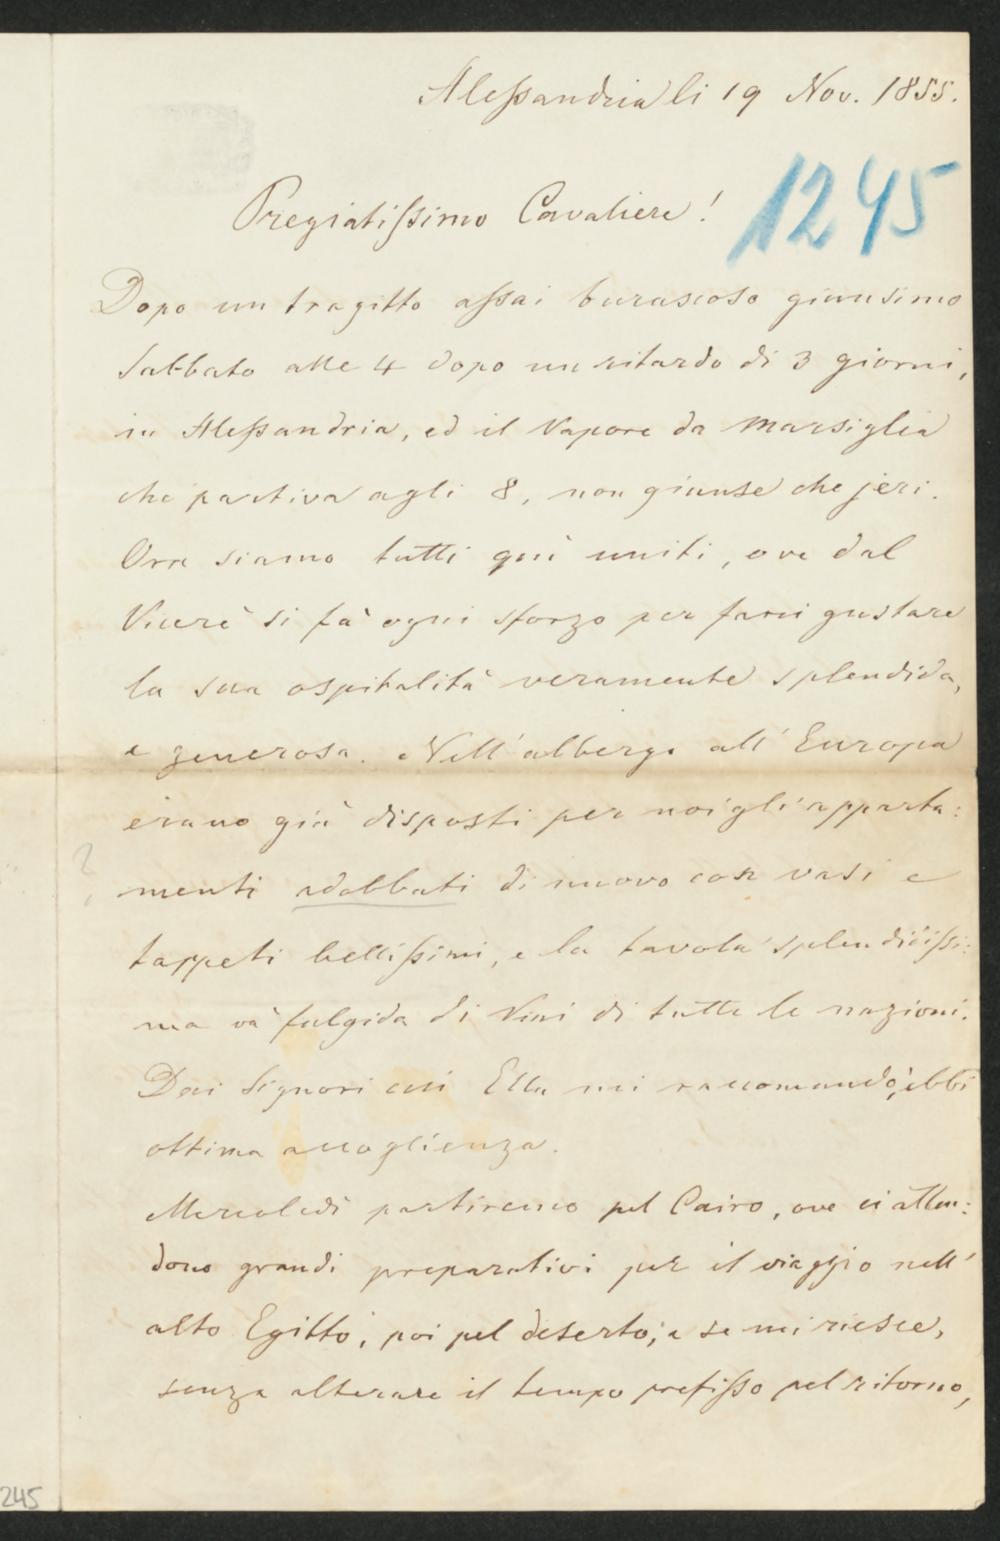 Alessandria li 19 Nov. 1855.
1245
Pregiatissimo Cavaliere!
Dopo un tragitto assai burascoso giunsimo
Sabbato alle 4 dopo un ritardo di 3 giorni,
in Alessandria, ed il Vapore da Marsiglia
che partiva agli 8, non giunse che jeri.
Ora siamo tutti quì uniti, ove dal
Vicerè si fà ogni sforzo per farci gustare
la sua ospitalità veramente splendida,
e generosa. Nell'albergo all'Europa
erano già disposti per noi gli apparta:
?
menti adobbati di nuovo con vasi e
tappeti bellissimi, e la tavola splendidissi:
ma và fulgida di Vini di tutte le nazioni.
Dai Signori cui Ella mi raccomandò, ebbi
ottima accoglienza.
Mercoledì partiremo pel Cairo, ove ci atten:
dono grandi preparativi per il viaggio nell'
alto Egitto, poi pel deserto; e se mi riesce,
senza alterare il tempo prefisso pel ritorno,
245